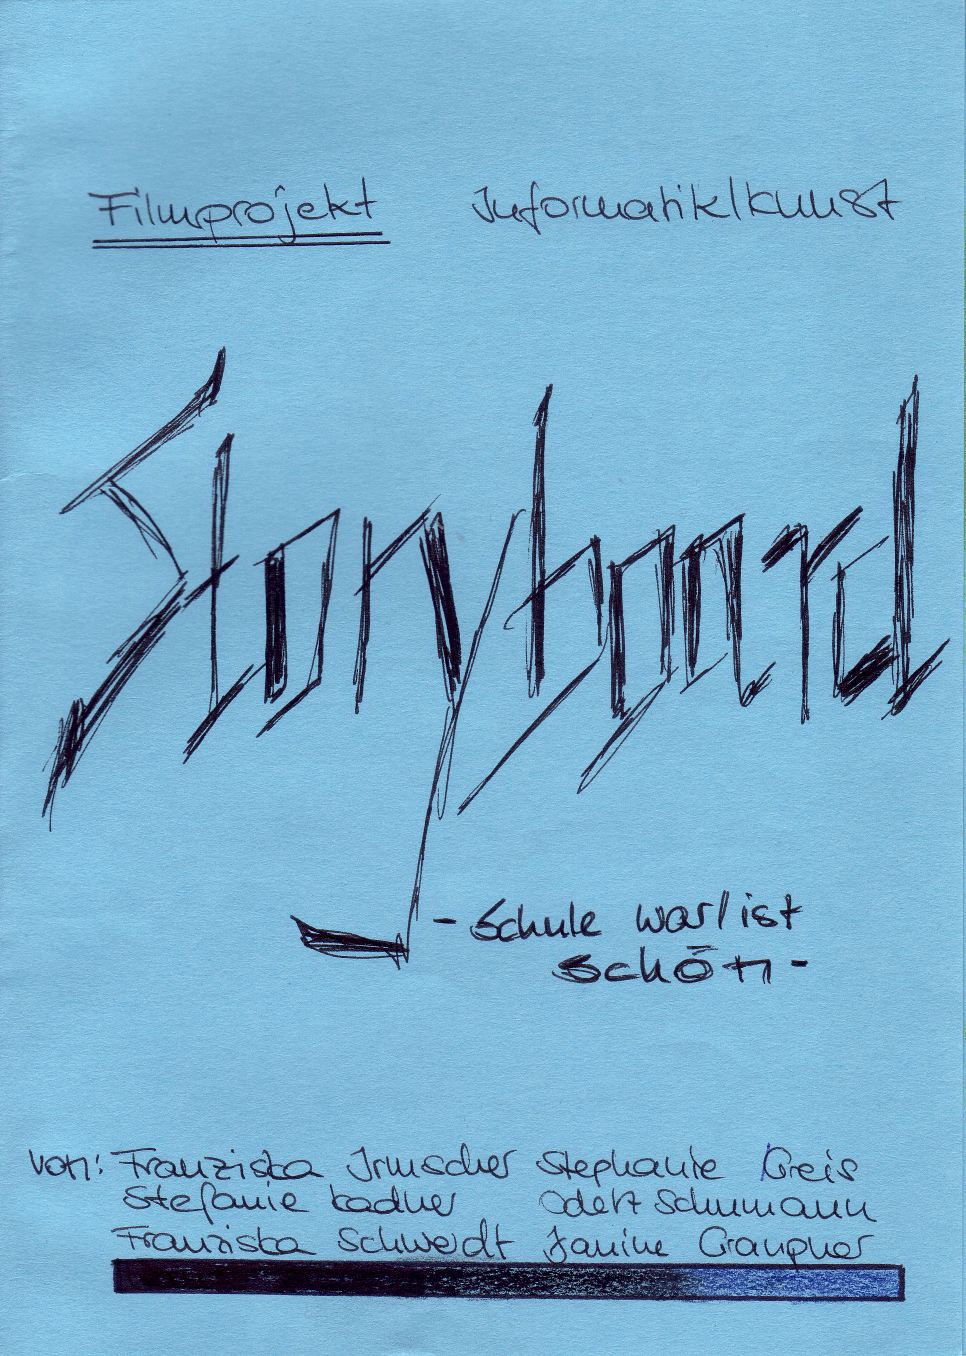 Filmprojekt Informatik/kunst
Storyboard
- Schule war/ist
schön -
von: Franziska Irmscher Stephanie Greis
Stefanie Kadner Odett Schumann
Franziska Schwerdt Janine Graupner